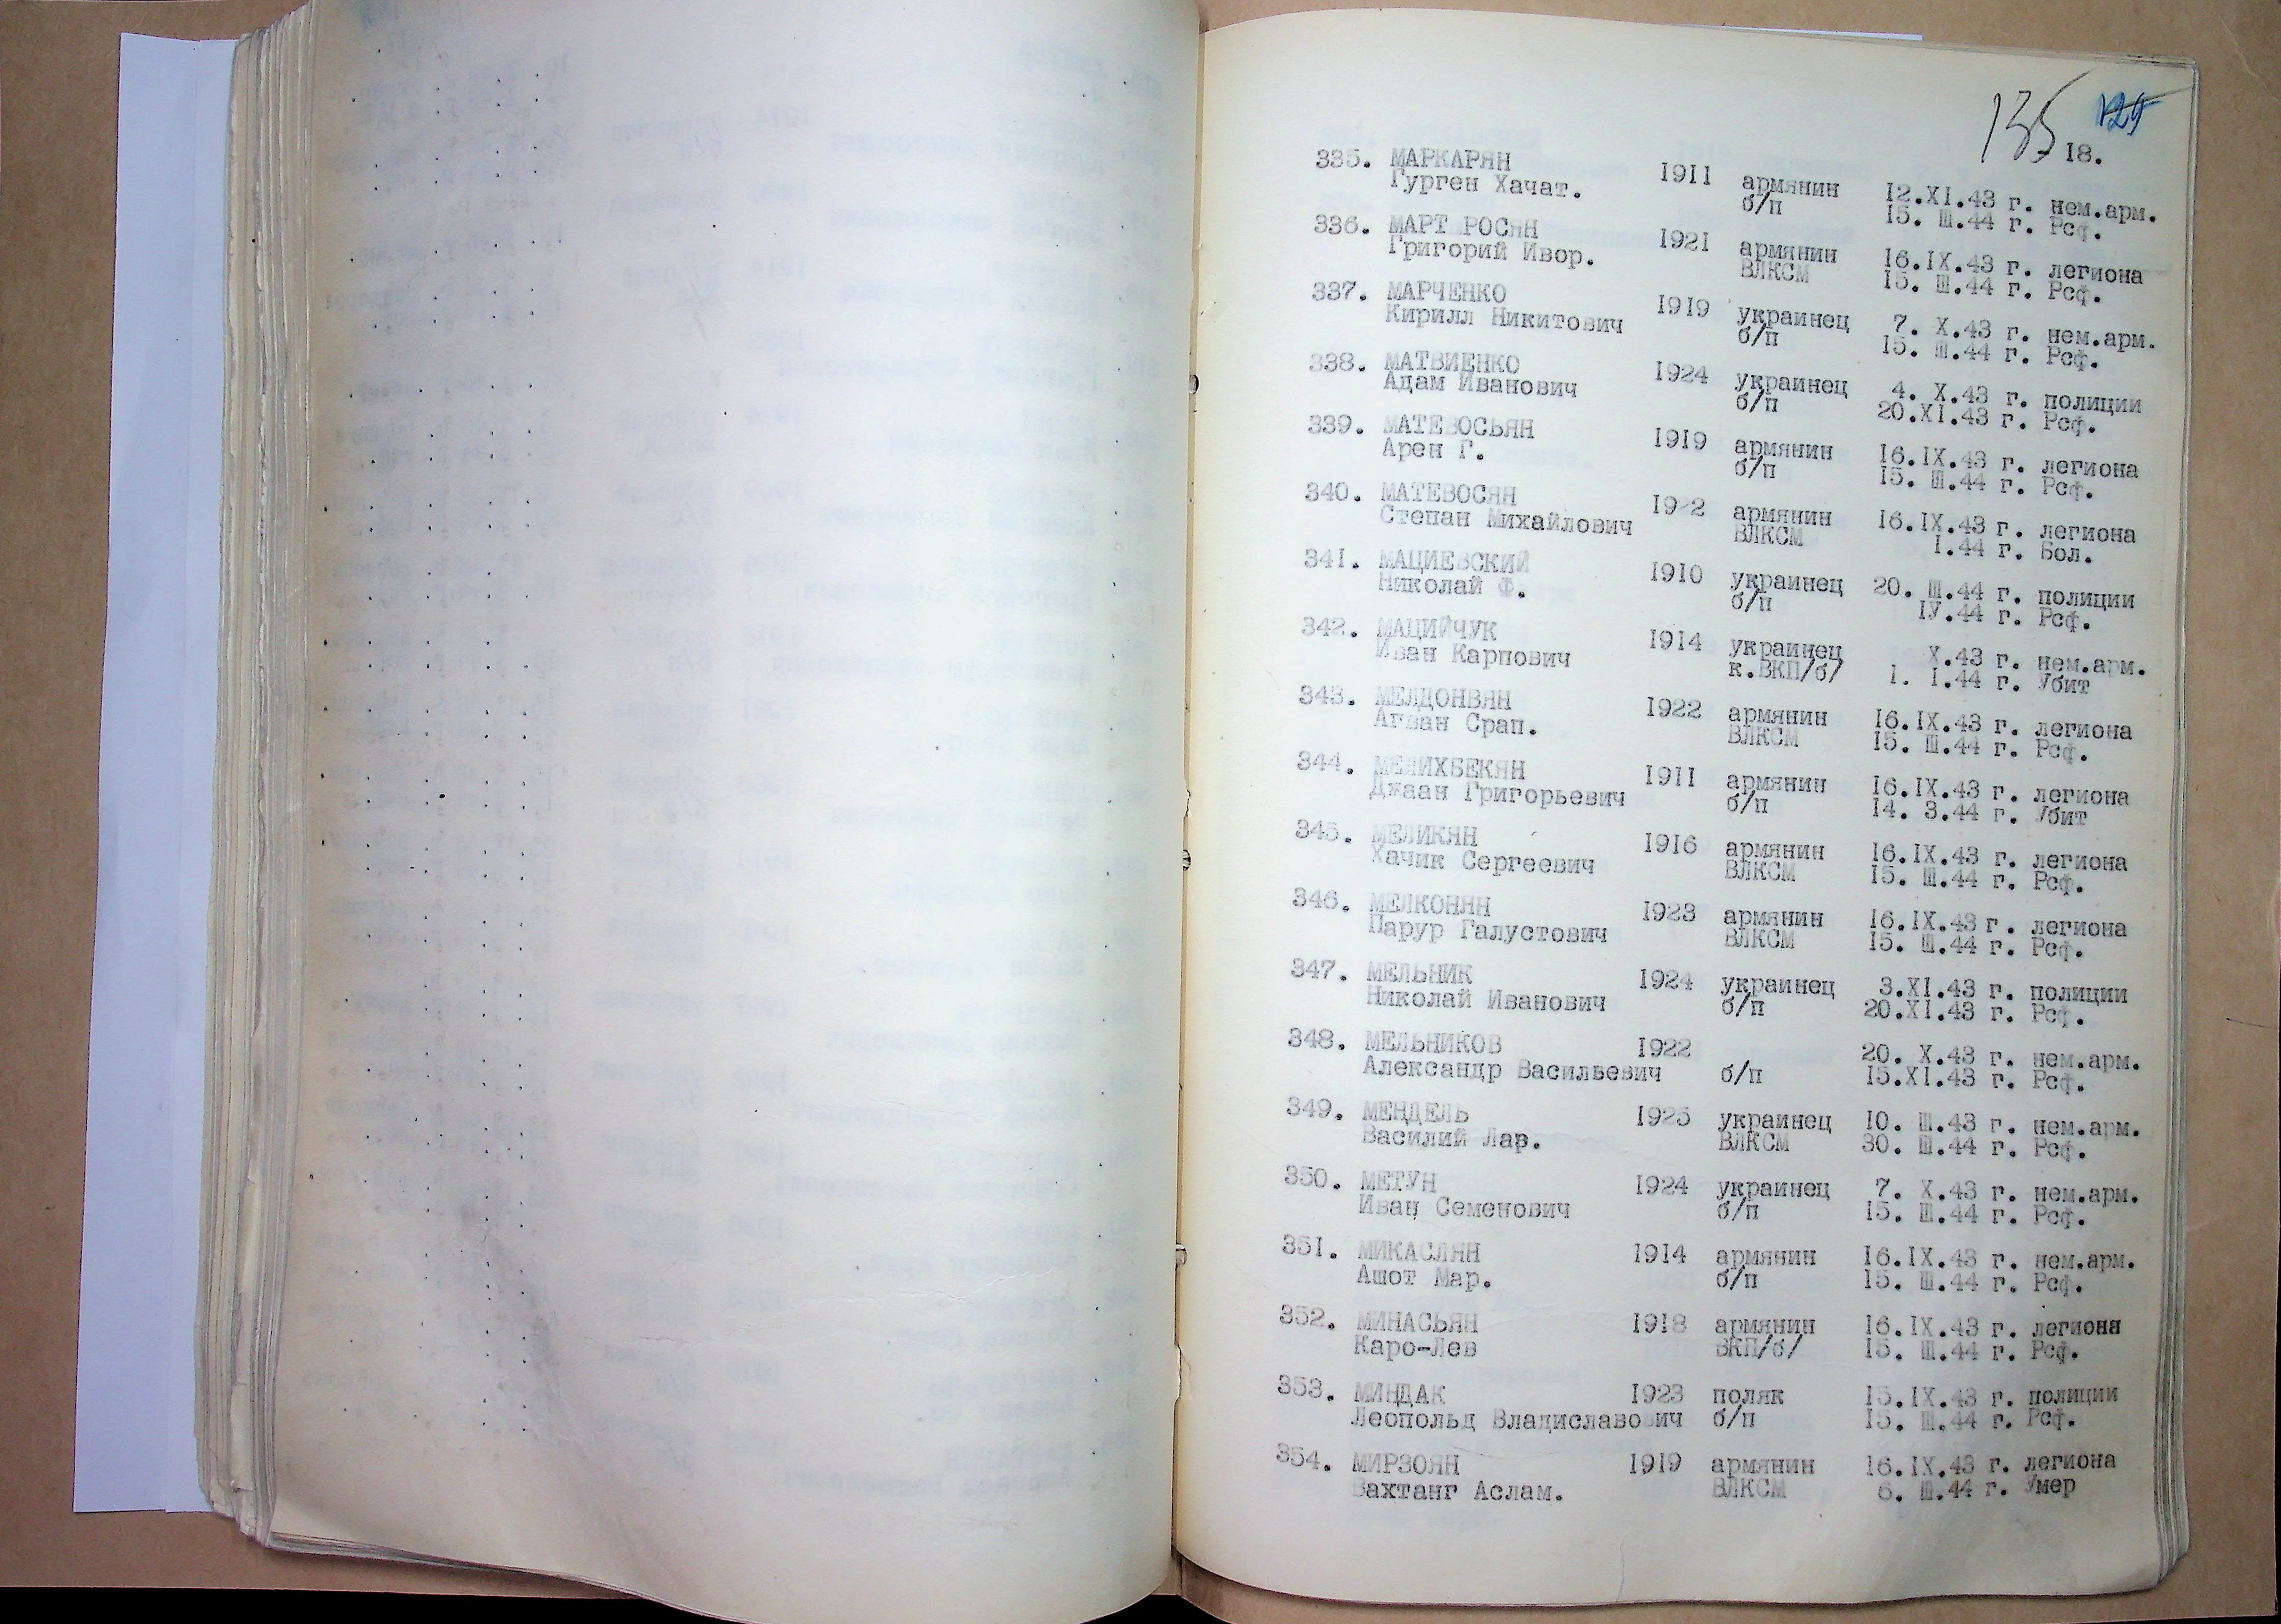 135 129
18.
335. МАРКАРЯН 1911 армянин 12.XI.43 г. нем.арм.
Гурген Хачат. б/п 15. Ш.44 г. Рсф.
336. МАРТ РОСЯН 1921 армянин 16.IX.43 г. легиона
Григорий Ивор. ВЛКСМ 15. Ш.44 г. Рсф.
337. МАРЧЕНКО 1919 украинец 7. X.43 г. нем.арм.
Кирилл Никитович б/п 15. Ш.44 г. Рсф.
338. МАТВИЕНКО 1924 украинец 4. X.43 г. полиции
Адам Иванович б/п 20.XI.43 г. Рсф.
339. МАТЕВОСЬЯН 1919 армянин 16.IX.43 г. легиона
Арен Г. б/п 15. Ш.44 г. Рсф.
340. МАТЕВОСЯН 1922 армянин 16.IX.43 г. легиона
Степан Михайлович ВЛКСМ I.44 г. Бол.
341. МАЦИЕВСКИЙ 1910 украинец 20. Ш.44 г. полиции
Николай Ф. б/п IУ.44 г. Рсф.
342. МАЦИЙЧУК 1914 украинец X.43 г. нем.арм.
Иван Карпович к.ВКП/б/ 1. I.44 г. Убит
343. МЕЛДОНВЯН 1922 армянин 16.IX.43 г. легиона
Агван Срап. ВЛКСМ 15. Ш.44 г. Рсф.
344. МЕЛИХБЕКЯН 1911 армянин 16.IX.43 г. легиона
Джаан Григорьевич б/п 14. 3.44 г. Убит
345. МЕЛИКЯН 1916 армянин 16.IX.43 г. легиона
Хачик Сергеевич ВЛКСМ 15. Ш.44 г. Рсф.
346. МЕЛКОНЯН 1923 армянин 16.IX.43 г. легиона
Парур Галустович ВЛКСМ 15. Ш.44 г. Рсф.
347. МЕЛЬНИК 1924 украинец 3.XI.43 г. полиции
Николай Иванович б/п 20.XI.43 г. Рсф.
348. МЕЛЬНИКОВ 1922 20. X.43 г. нем.арм.
Александр Васильевич б/п 15.XI.43 г. Рсф.
349. МЕНДЕЛЬ 1925 украинец 10. Ш.43 г. нем.арм.
Василий Лар. ВЛКСМ 30. Ш.44 г. Рсф.
350. МЕТУН 1924 украинец 7. X.43 г. нем.арм.
Иван Семенович б/п 15. Ш.44 г. Рсф.
351. МИКАСЛЯН 1914 армянин 16.IX.43 г. нем.арм.
Ашот Мар. б/п 15. Ш.44 г. Рсф.
352. МИНАСЬЯН 1918 армянин 16.IX.43 г. легиона
Каро-Лев ВКП/б/ 15. Ш.44 г. Рсф.
353. МИНДАК 1923 поляк 15.IX.43 г. полиции
Леопольд Владиславович б/п 15. Ш.44 г. Рсф.
354. МИРЗОЯН 1919 армянин 16.IX.43 г. легиона
Вахтанг Аслам. ВЛКСМ 6. Ш.44 г. Умер